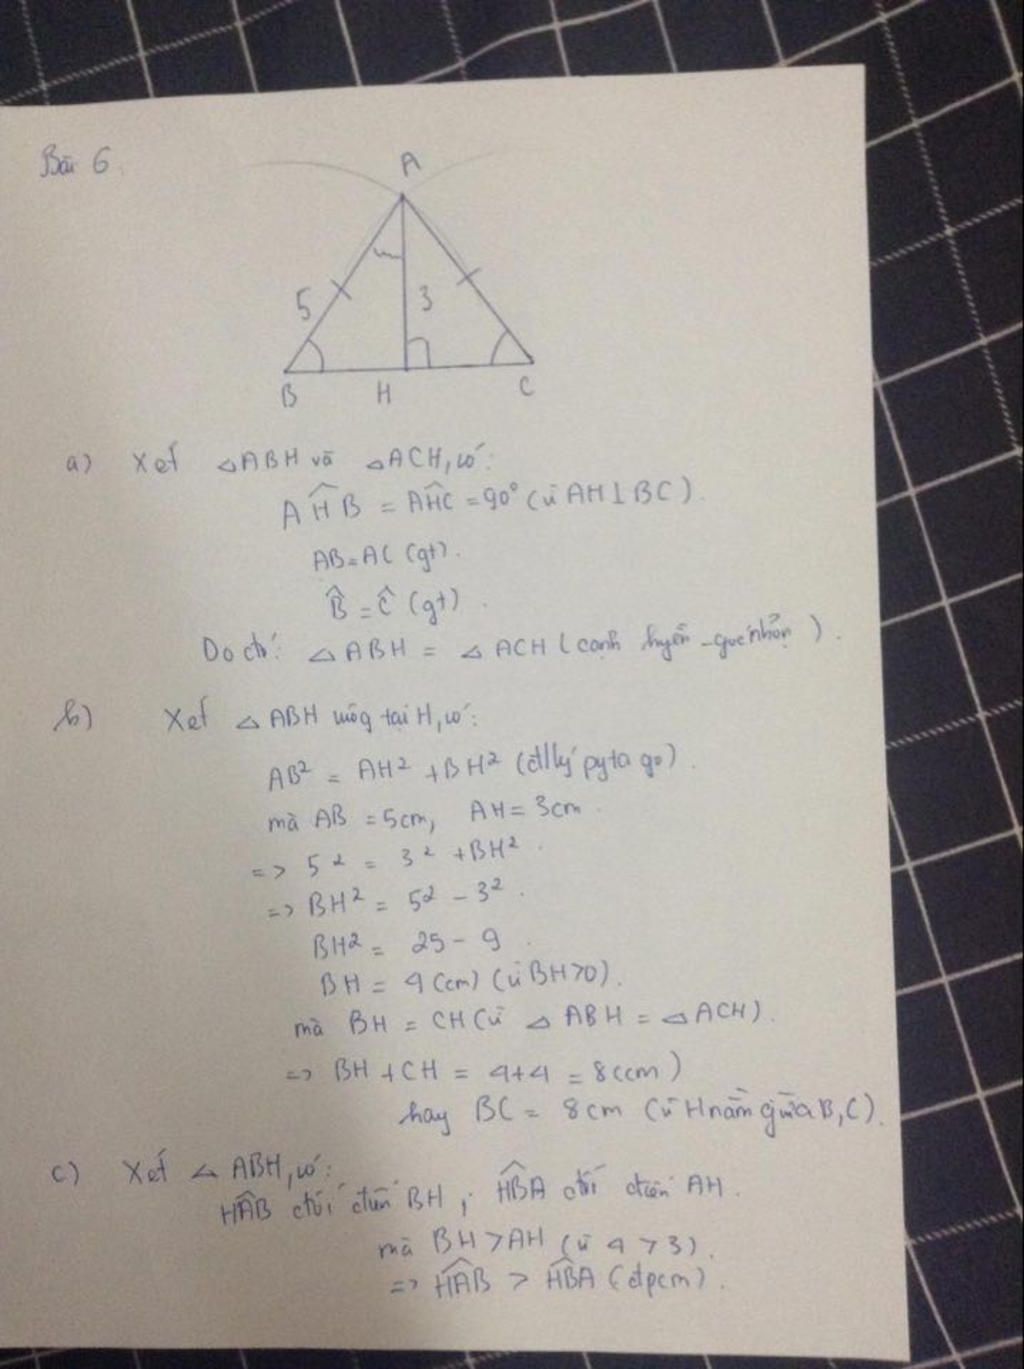 Bài 6.
A
5
3
B
H
C
a) Xét △ABH và △ACH, có:
AĤB = AĤC = 90° (vì AH ⊥ BC).
AB = AC (gt).
B̂ = Ĉ (gt).
Do đó: △ABH = △ACH (cạnh huyền - góc nhọn).
b) Xét △ABH vuông tại H, có:
AB² = AH² + BH² (đ/lý pytago).
mà AB = 5cm, AH = 3cm.
=> 5² = 3² + BH².
=> BH² = 5² - 3².
BH² = 25 - 9.
BH = 4 (cm) (vì BH > 0).
mà BH = CH (vì △ABH = △ACH).
=> BH + CH = 4+4 = 8 (cm)
hay BC = 8cm (vì H nằm giữa B, C).
c) Xét △ABH, có:
HÂB đối diện BH; HB̂A đối diện AH.
mà BH > AH (vì 4 > 3).
=> HÂB > HB̂A (đpcm).